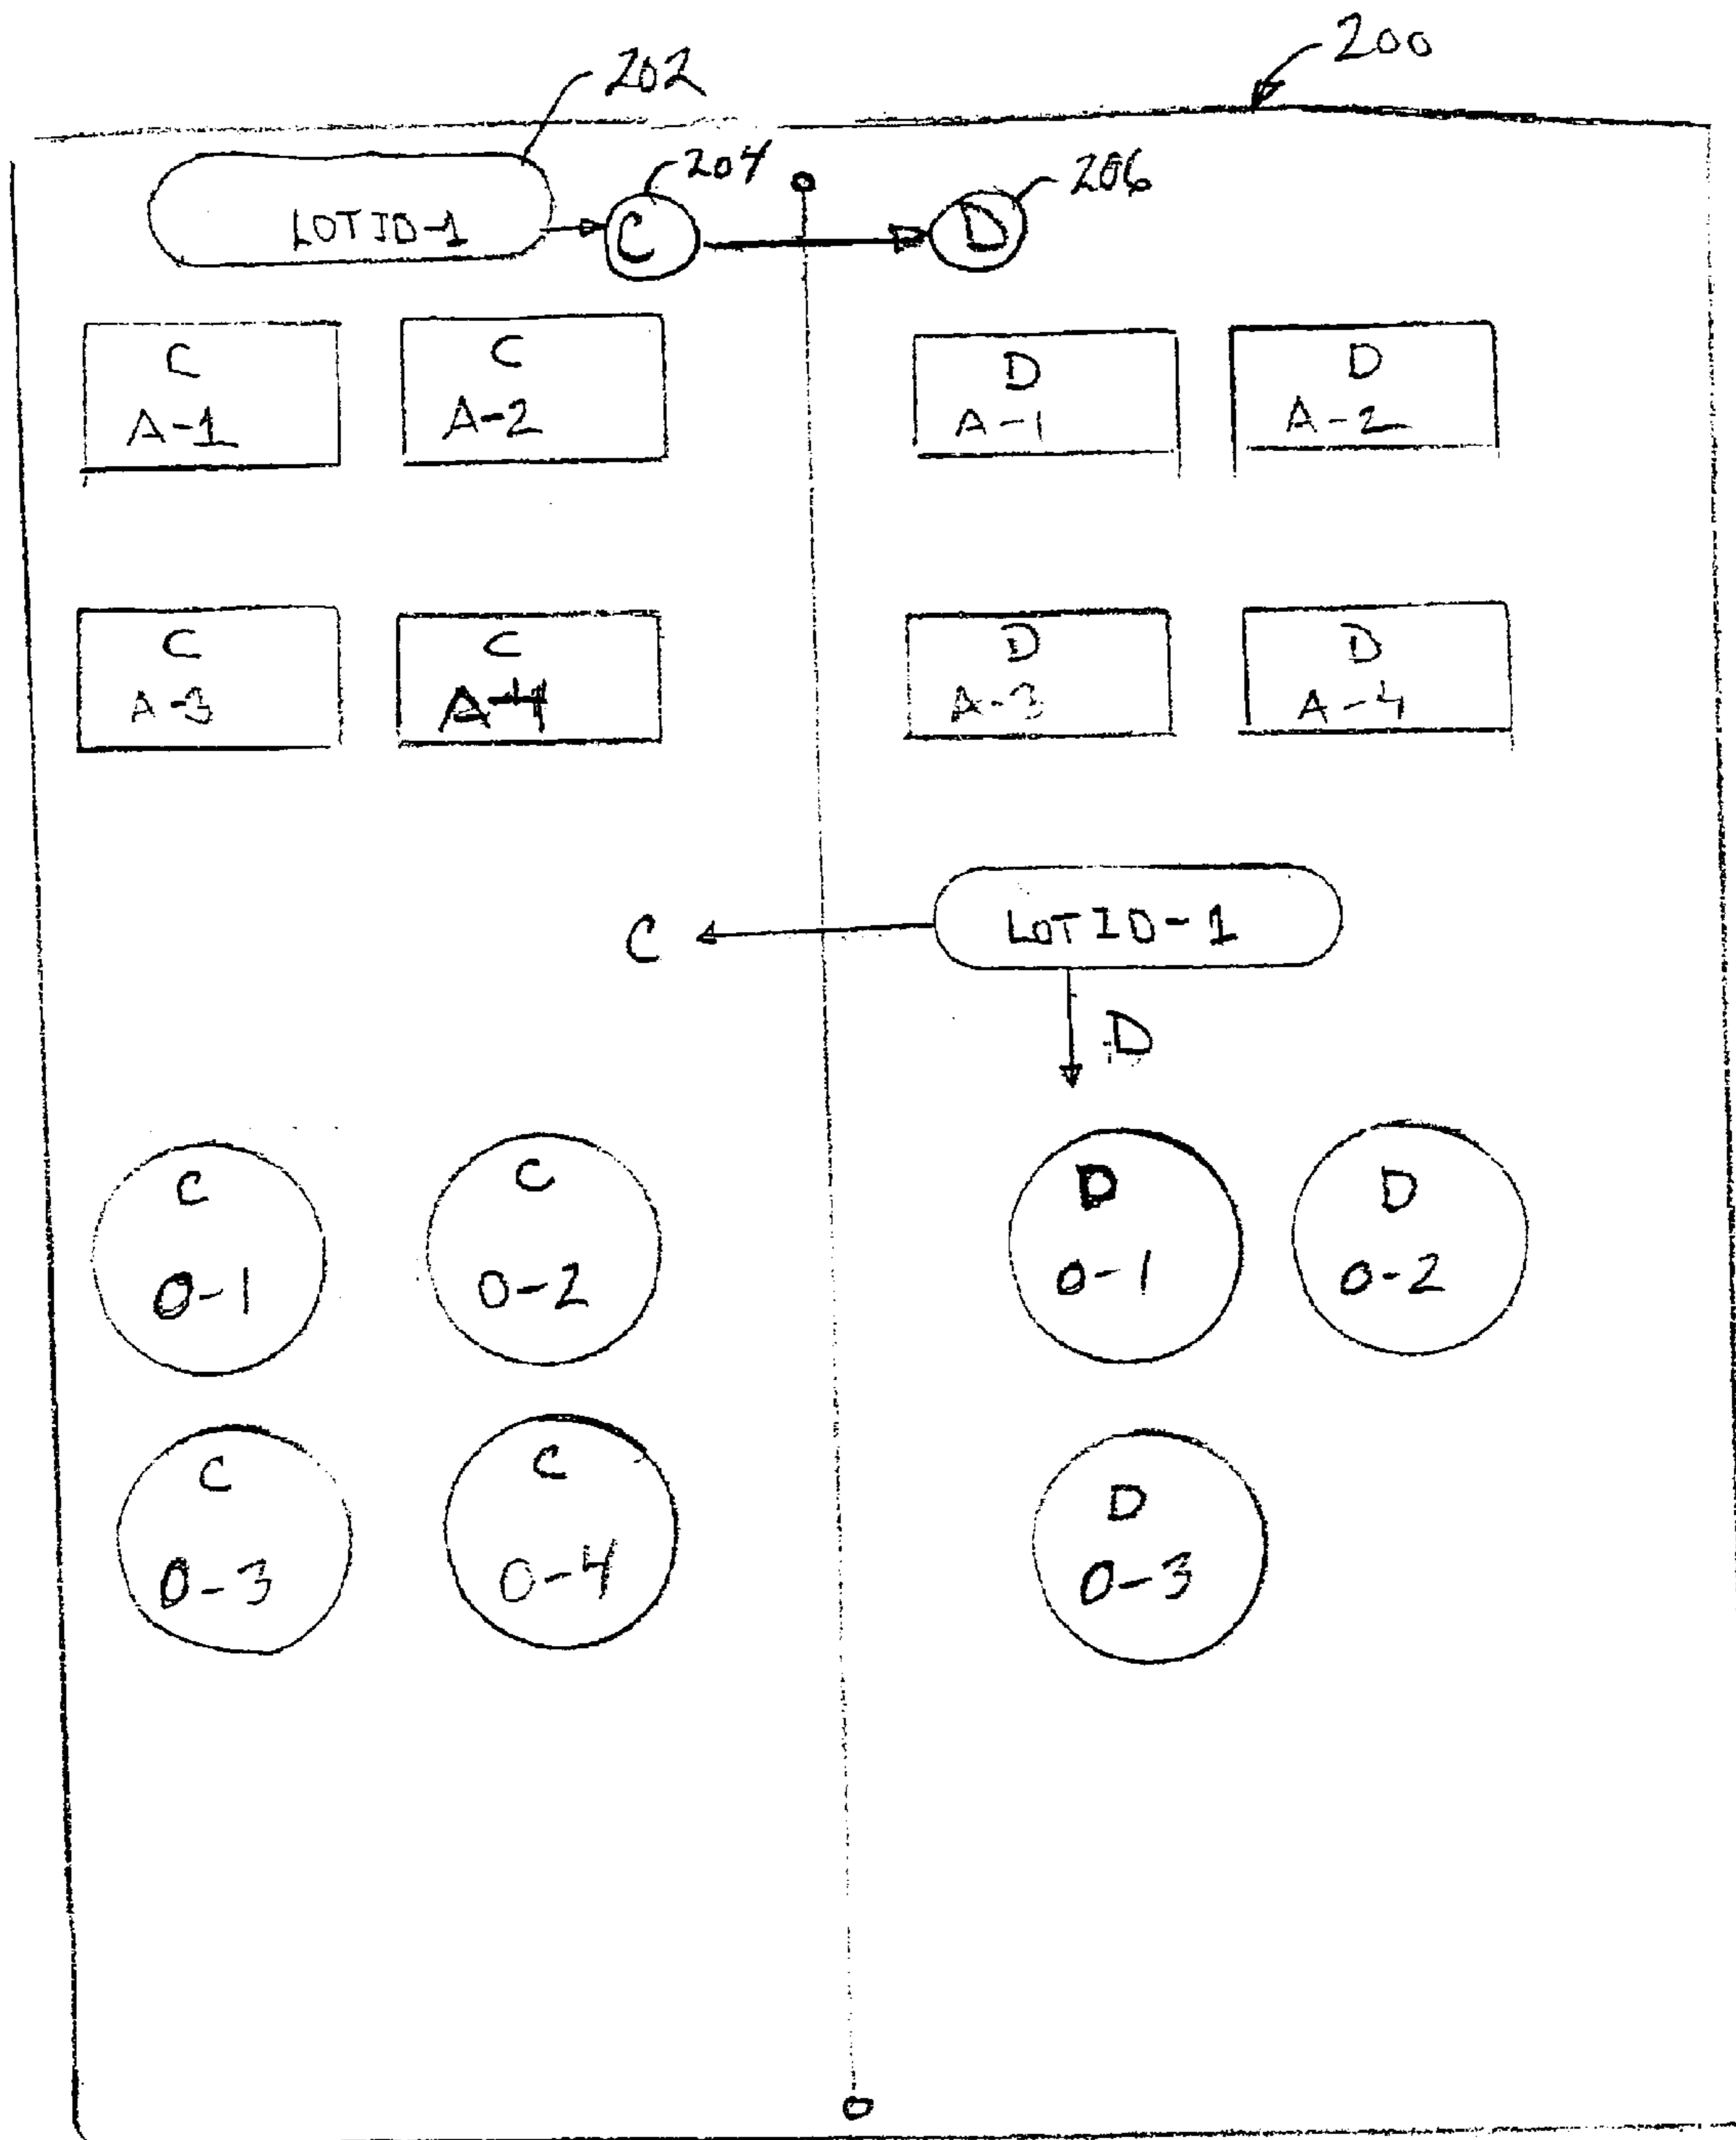 200
202
204
206
LOT ID-1
C
D
C
A-1
C
A-2
D
A-1
D
A-2
C
A-3
C
A-4
D
A-3
D
A-4
LOT ID-1
C
D
C
O-1
C
O-2
D
O-1
D
O-2
C
O-3
C
O-4
D
O-3